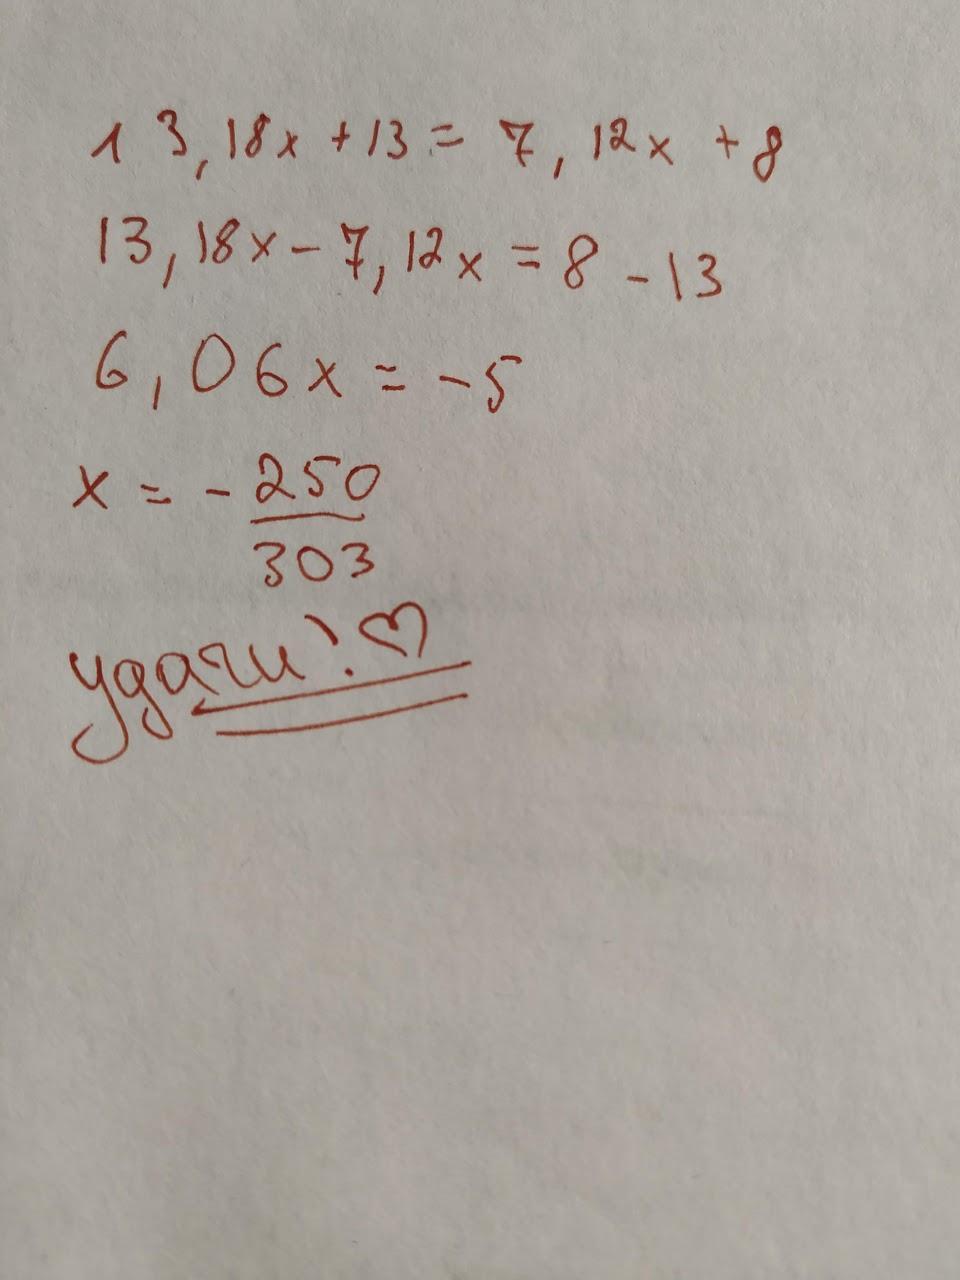 13,18x + 13 = 7,12x + 8
13,18x - 7,12x = 8 - 13
6,06x = -5
x = - 250
303
удачи! ♡